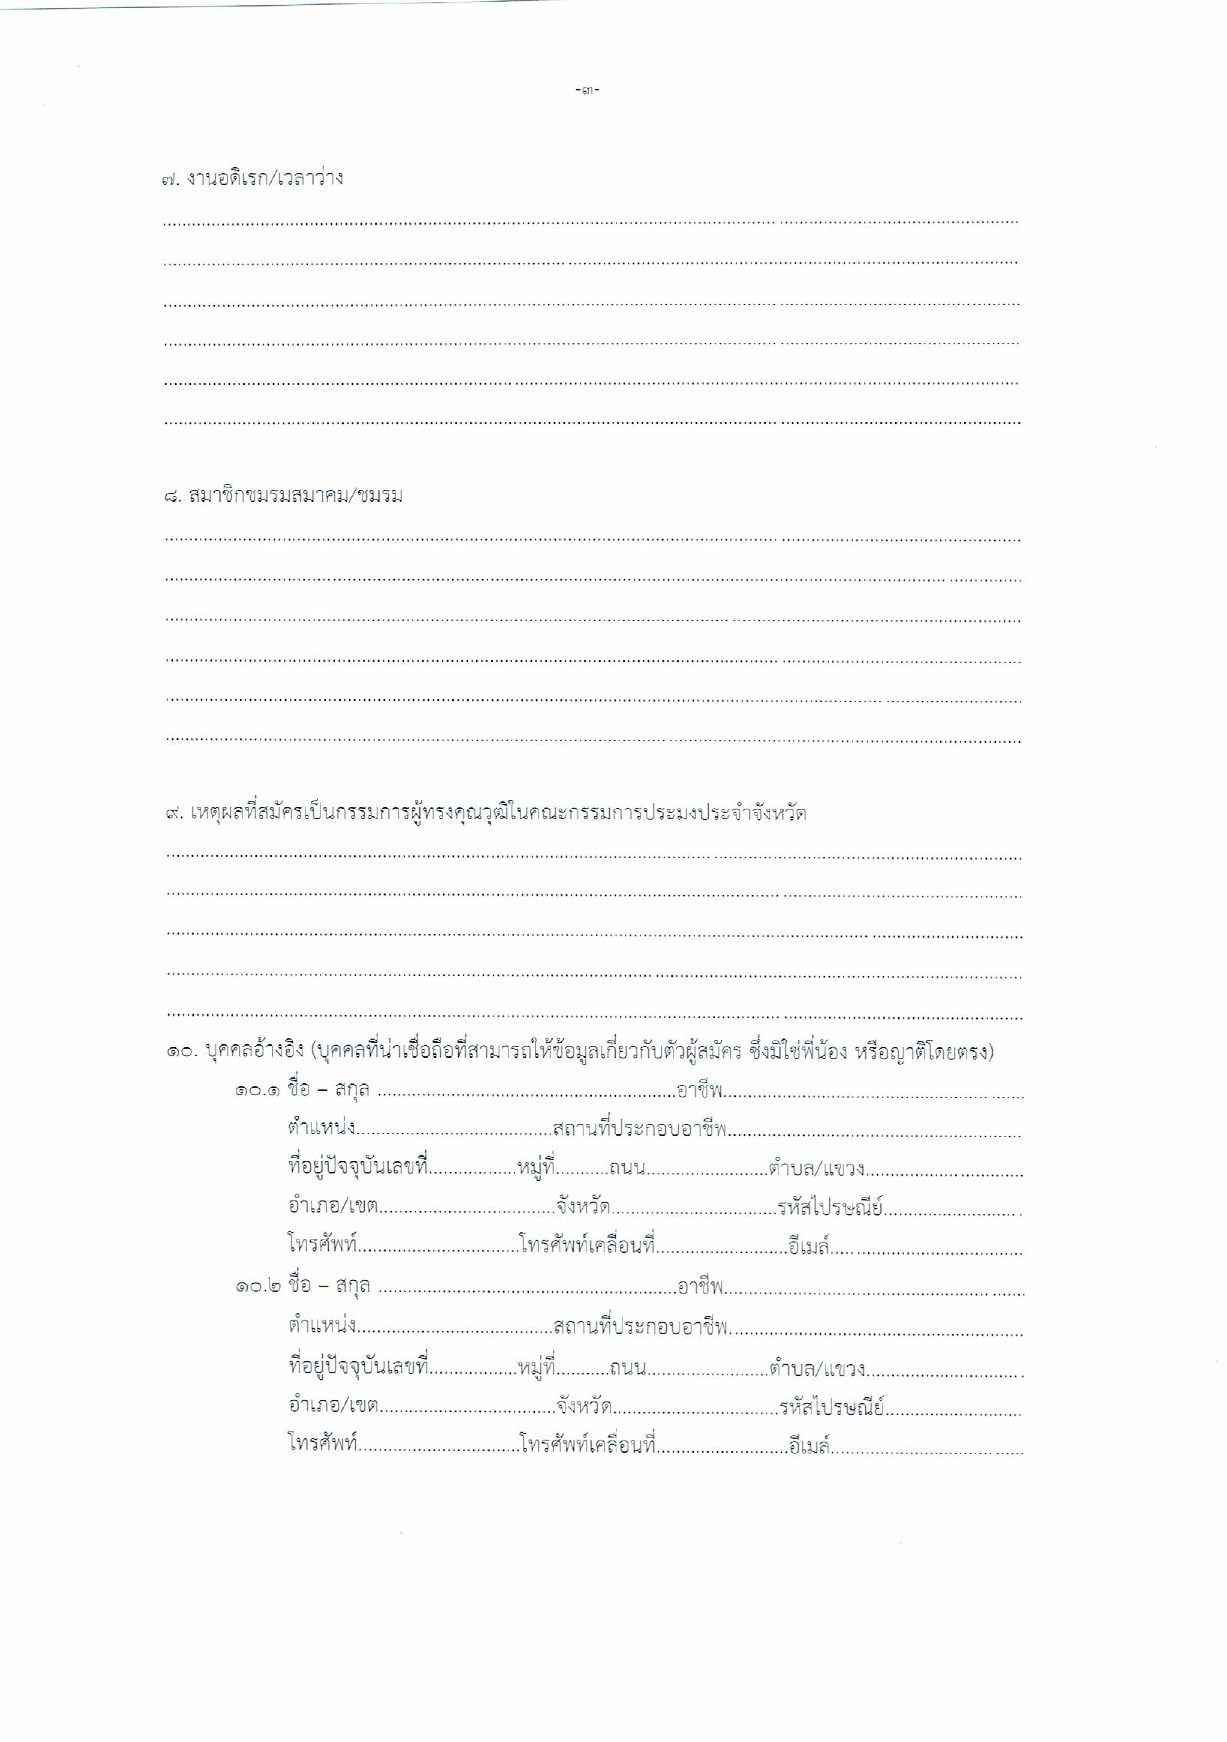 -๓-
๗. งานอดิเรก/เวลาว่าง
๘. สมาชิกชมรมสมาคม/ชมรม
๙. เหตุผลที่สมัครเป็นกรรมการผู้ทรงคุณวุฒิในคณะกรรมการประมงประจำจังหวัด
๑๐. บุคคลอ้างอิง (บุคคลที่น่าเชื่อถือที่สามารถให้ข้อมูลเกี่ยวกับตัวผู้สมัคร ซึ่งมิใช่พี่น้อง หรือญาติโดยตรง)
๑๐.๑ ชื่อ – สกุล ..................................................อาชีพ..................................................
ตำแหน่ง..................................สถานที่ประกอบอาชีพ..................................................
ที่อยู่ปัจจุบันเลขที่.................หมู่ที่..........ถนน.......................ตำบล/แขวง..............................
อำเภอ/เขต..................................จังหวัด................................รหัสไปรษณีย์..........................
โทรศัพท์...............................โทรศัพท์เคลื่อนที่.........................อีเมล์....................................
๑๐.๒ ชื่อ – สกุล ..................................................อาชีพ..................................................
ตำแหน่ง..................................สถานที่ประกอบอาชีพ..................................................
ที่อยู่ปัจจุบันเลขที่.................หมู่ที่..........ถนน.......................ตำบล/แขวง..............................
อำเภอ/เขต..................................จังหวัด................................รหัสไปรษณีย์..........................
โทรศัพท์...............................โทรศัพท์เคลื่อนที่.........................อีเมล์....................................